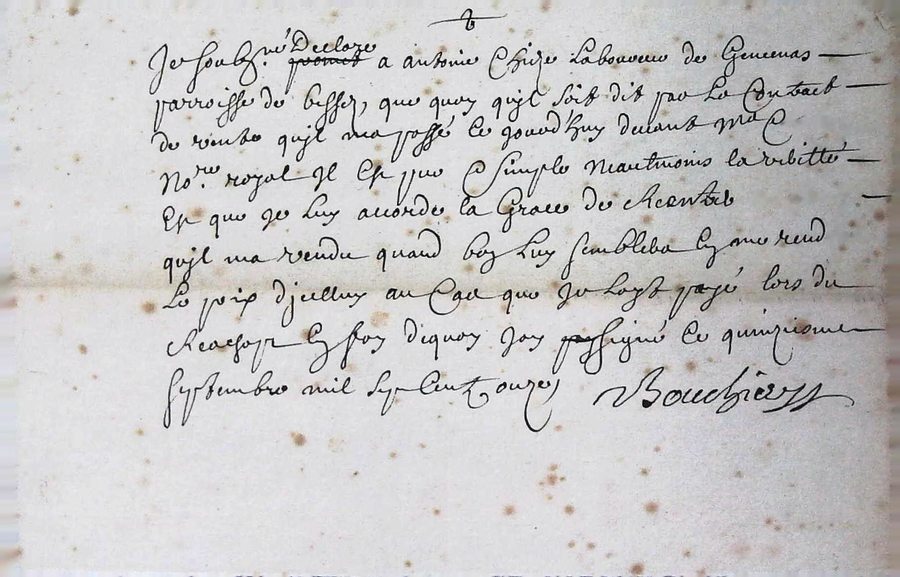 Je soubz.né Declare promet a antoine Chize Laboureur de Gemenas
parroisse de bessez, que quoy quyl soit dit par Le Contract
de vente quyl ma passé ce jourd'huy devant Me
No.re royal Jl Est que simple neantmoins la veritté
Est que Je Luy accorde la Grace de
quyl ma vendu quand bon Luy semblera En me rend
Le prix djcelluy au Cas que Je Layt payé lors du
Reachapt En foy dequoy Jay signé Ce quinzieme
septembre mil sept Cent onze Bouchier